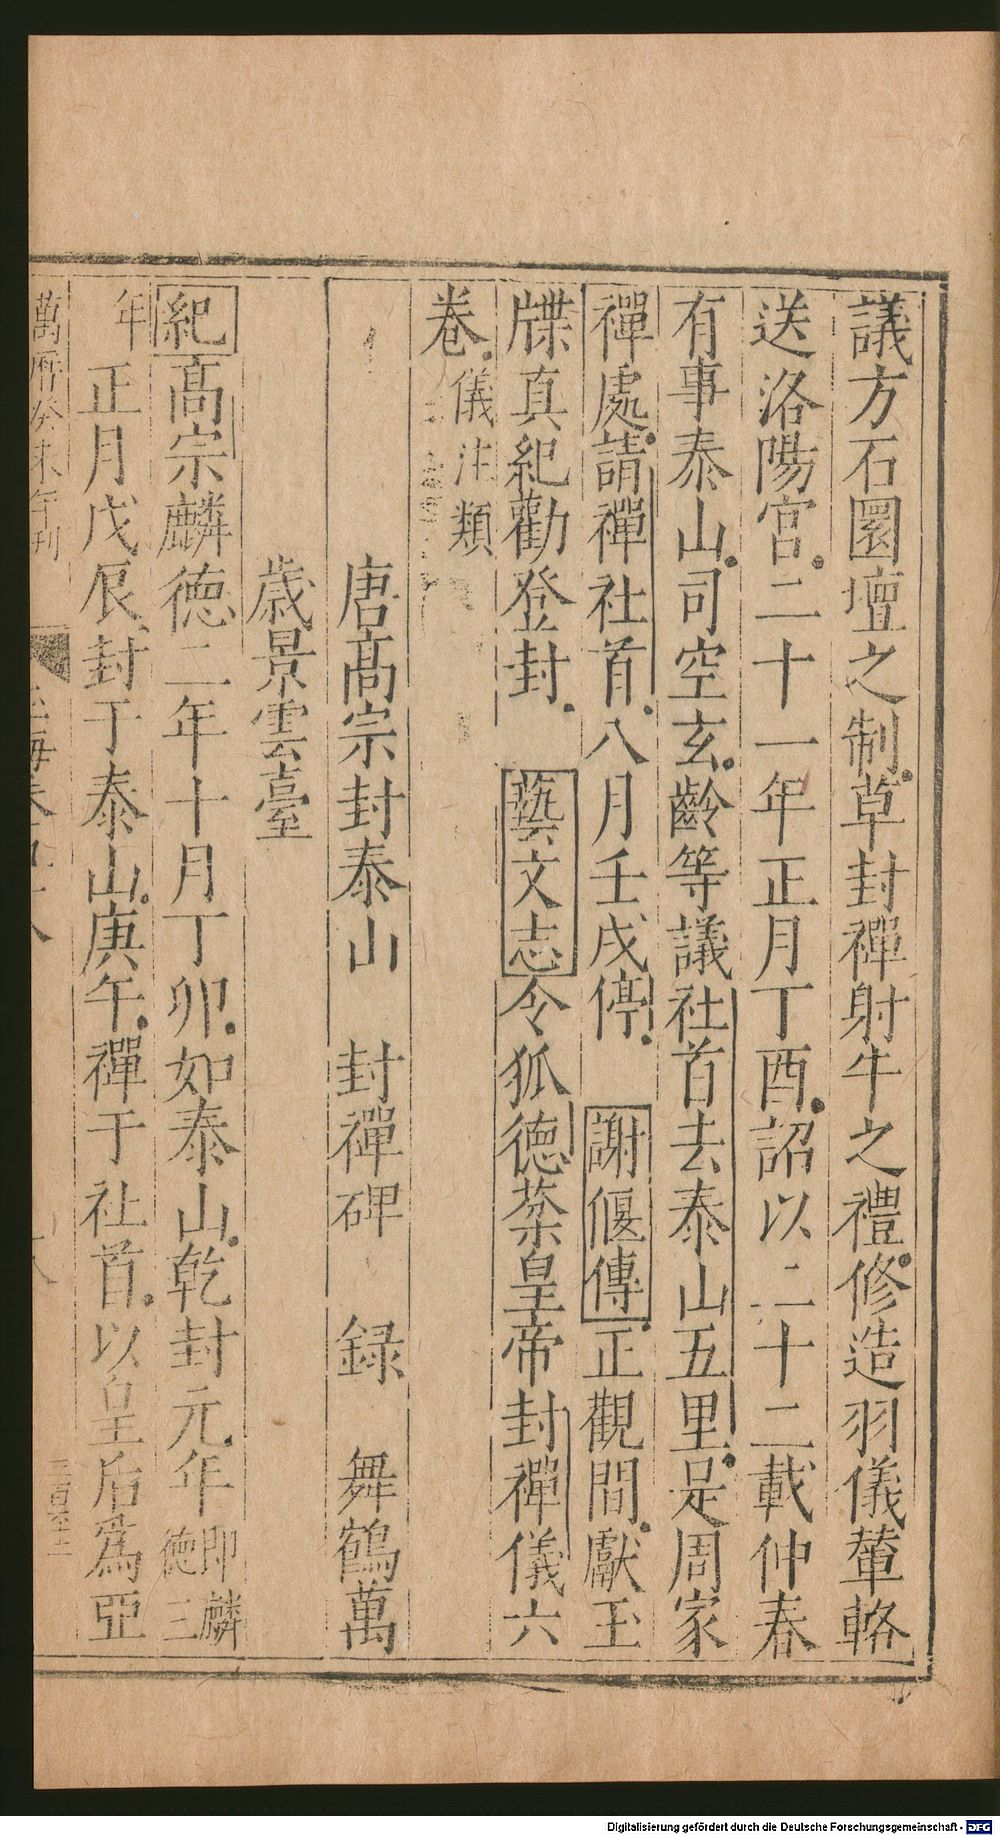 議方石圜壇之制草封禪射牛之禮修造羽儀輦輅
送洛陽宮二十一年正月丁酉詔以二十二載仲春
有事泰山司空玄齡等議社首去泰山五里是周家
禪處請禪社首八月壬戌停 謝偃傳正觀間獻玉
牒真紀勸登封 藝文志令狐德棻皇帝封禪儀六
卷儀注類
唐高宗封泰山 封禪碑 録 舞鶴萬
歳景雲臺
紀高宗麟德二年十月丁卯如泰山乾封元年即麟德三
年正月戊辰封于泰山庚午禪于社首以皇后為亞
萬曆癸未年刊
Digitalisierung gefördert durch die Deutsche Forschungsgemeinschaft - DFG